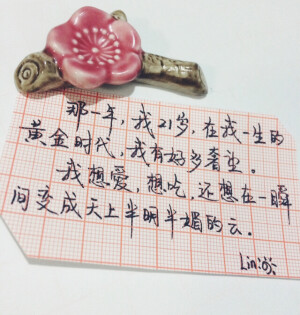 那一年，我21岁，在我一生的
黄金时代，我有好多奢望。
我想爱，想吃，还想在一瞬
间变成天上半明半媚的云。